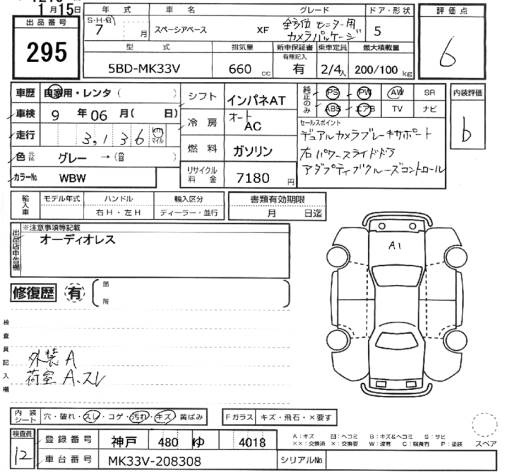 月15日
出品番号
295
S・H・R
7 月
年式
車名
スペーシアベース
グレード
XF 全方位モニター用カメラパッケージ
ドア・形状
5
評価点
6
型式
5BD-MK33V
排気量
660 cc
新車保証書
有種記入
有
乗車定員
2/4人
最大積載量
200/100 kg
車歴 自家用・レンタ( )
車検 9年 06月( 日)
走行 3,136 km マイル
色 元色 グレー →(替 )
カラーNo WBW
シフト インパネAT
冷房 オート AC
燃料 ガソリン
リサイクル料金 7180円
純正のみ
PS PW AW SR
ABS エアB TV ナビ
セールスポイント
デュアルカメラブレーキサポート
右パワースライドドア
アダプティブクルーズコントロール
内装評価
b
輸入車
モデル年式 ハンドル 輸入区分
年 右H・左H ディーラー・並行
書類有効期限
月 日迄
※注意事項等記載
オーディオレス
修復歴 有
箇所
検査員記入欄
外装A
荷室A、スレ
A1
内装シート 穴・破れ・スレ・コゲ・汚れ・キズ・黄ばみ
Fガラス キズ・飛石・×要す
スペア
検査員
12
登録番号 神戸 480 ゆ 4018
車台番号 MK33V-208308
シリアルNo